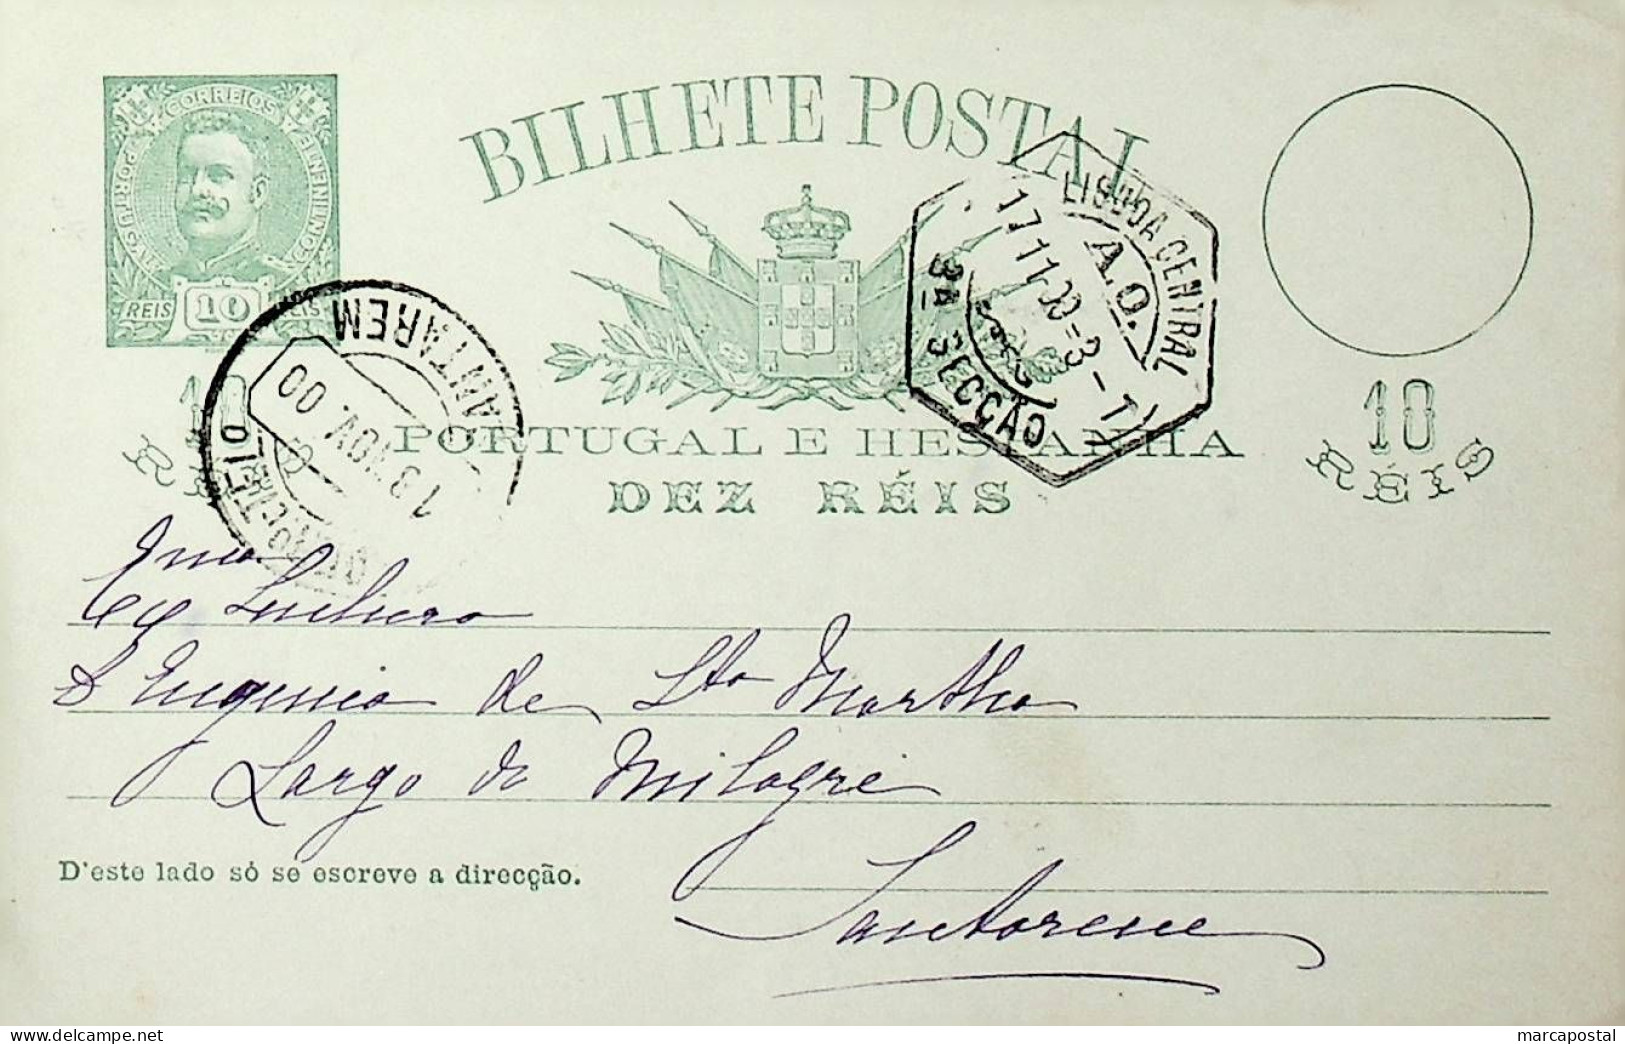 BILHETE POSTAL
CORREIOS
PORTUGAL
CONTINENTE
REIS 10 REIS
LISBOA CENTRAL
A.O.
3A SECÇÃO
SANTAREM
13 NOV. 00
PORTUGAL E HESPANHA
DEZ RÉIS
10
RÉIS
10
RÉIS
Exma
Senhora
D Eugenia de Sta Martha
Largo do Milagre
Santarem
D'este lado só se escreve a direcção.
delcampe.net
marcapostal